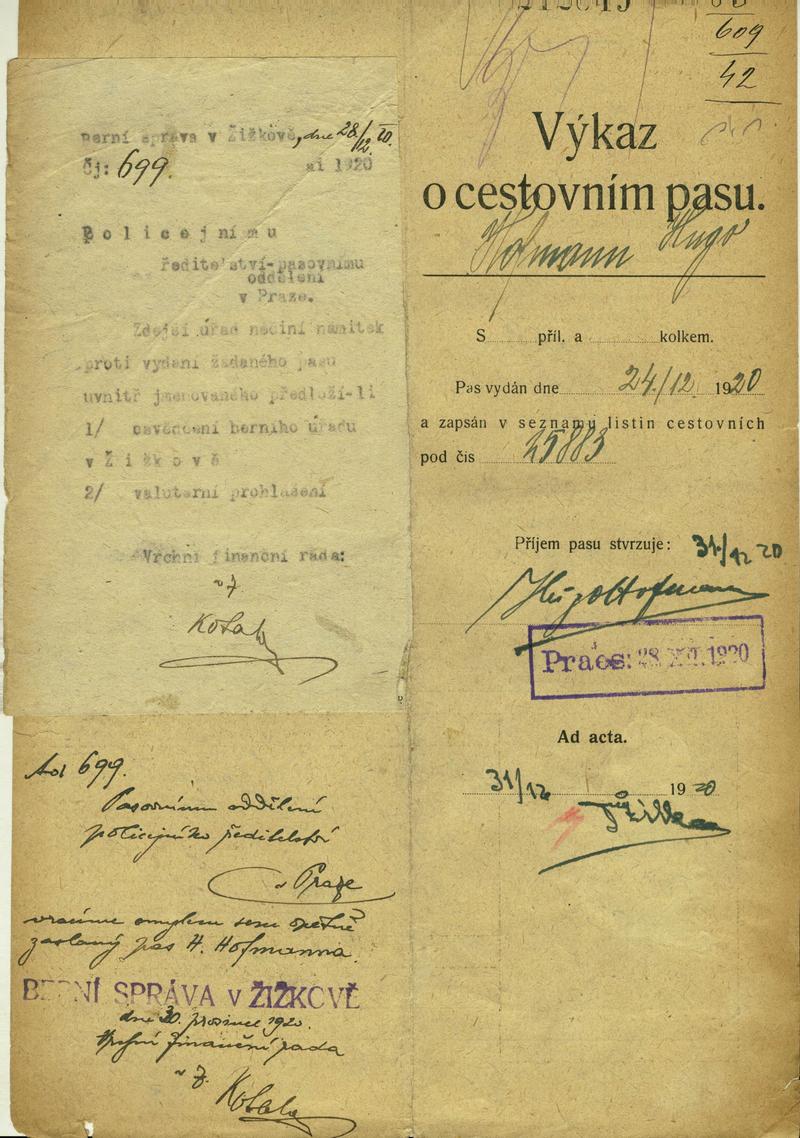 Berní správa v Žižkově, dne 28/12 20.
Čj: 699. ai 1920
Policejnímu
ředitelství-pasovnímu
oddělení
v Praze.
Zdejší úřad nečiní námitek
proti vydání žádaného pasu
uvnitř jmenovaného předloží-li
1/ osvědčení berního úřadu
v Žižkově
2/ valutární prohlášení
Vrchní finanční rada:
Ad 699.
Pasovnímu oddělení
policejního ředitelství
v Praze
vracíme omylem sem opětně
zaslaný pas H. Hofmanna.
BERNÍ SPRÁVA v ŽIŽKOVĚ
dne 30. prosince 1920.
Vrchní finanční rada
609
42
Výkaz
o cestovním pasu.
Hofmann Hugo
S příl. a kolkem.
Pas vydán dne 24./12. 1920
a zapsán v seznamu listin cestovních
pod čís 25883
Příjem pasu stvrzuje: 31/12 20
Hugo Hofmann
Praes: 28.XII.1920
Ad acta.
31/12 1920